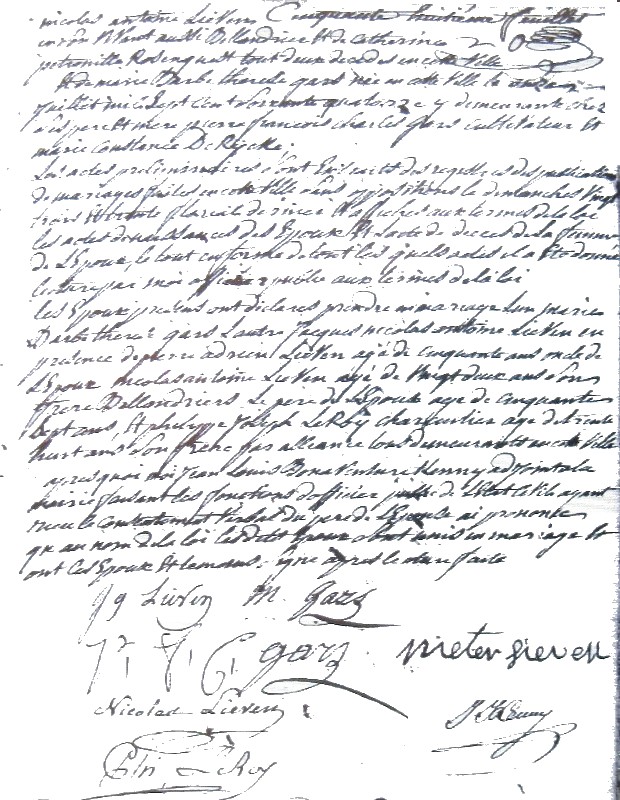 nicolas antoine Lieven Cinquante huitieme feuillet
Bellandrier et de Catherine
petronille Rosenquest tout deux decedes en cette Ville
Et de marie Barbe therese gars née en cette Ville le onze
juillet mil Sept Cent Soixante quatorze y demeurante chez
ses pere et mere pierre francois charles gars cultivateur et
marie Constance De Rycke.
Les actes preliminaires sont Extrait des registres des publications
de mariages faites en cette Ville sans oppositions le dimanches Vingt
trois et trente floreal dernier et affiches aux termes de la loi
les actes de naissances des Epoux Et Lacte de deces de la femme
de L'Epoux, le tout en forme de tout les quels actes il a Eté donnée
lecture par moi officier public aux termes de la loi
les Epoux presens ont declares prendre en mariage Lun marie
Barbe therese gars Lautre Jacques nicolas antoine Lieven en
presence de pierre adrien Lieven agé de cinquante ans oncle de
L'Epoux nicolas antoine Lieven agé de Vingt deux ans son
frere Bellandriers Le pere de L'Epouse age de cinquante
Sept ans, et philippe Joseph LeRoy charcutier age de trente
huit ans Son frere par alliance tous demeurant en cette Ville
apres quoi moi Jean Louis Bonaventure Kenny adjoint a la
mairie faisant les fonctions dofficier public de L'Etat Civile ayant
recu le Consentement Verbal du pere de L'Epouse ai prononcé
qu au nom de la loi lesdits Epoux sont unis en mariage Et
ont les Epoux Et temoins signe apres lecture faite
J n Lieven M. Gars
p, f, C, gars pieter Lieven
Nicolas Lieven J L B Kenny
Phi, LeRoy